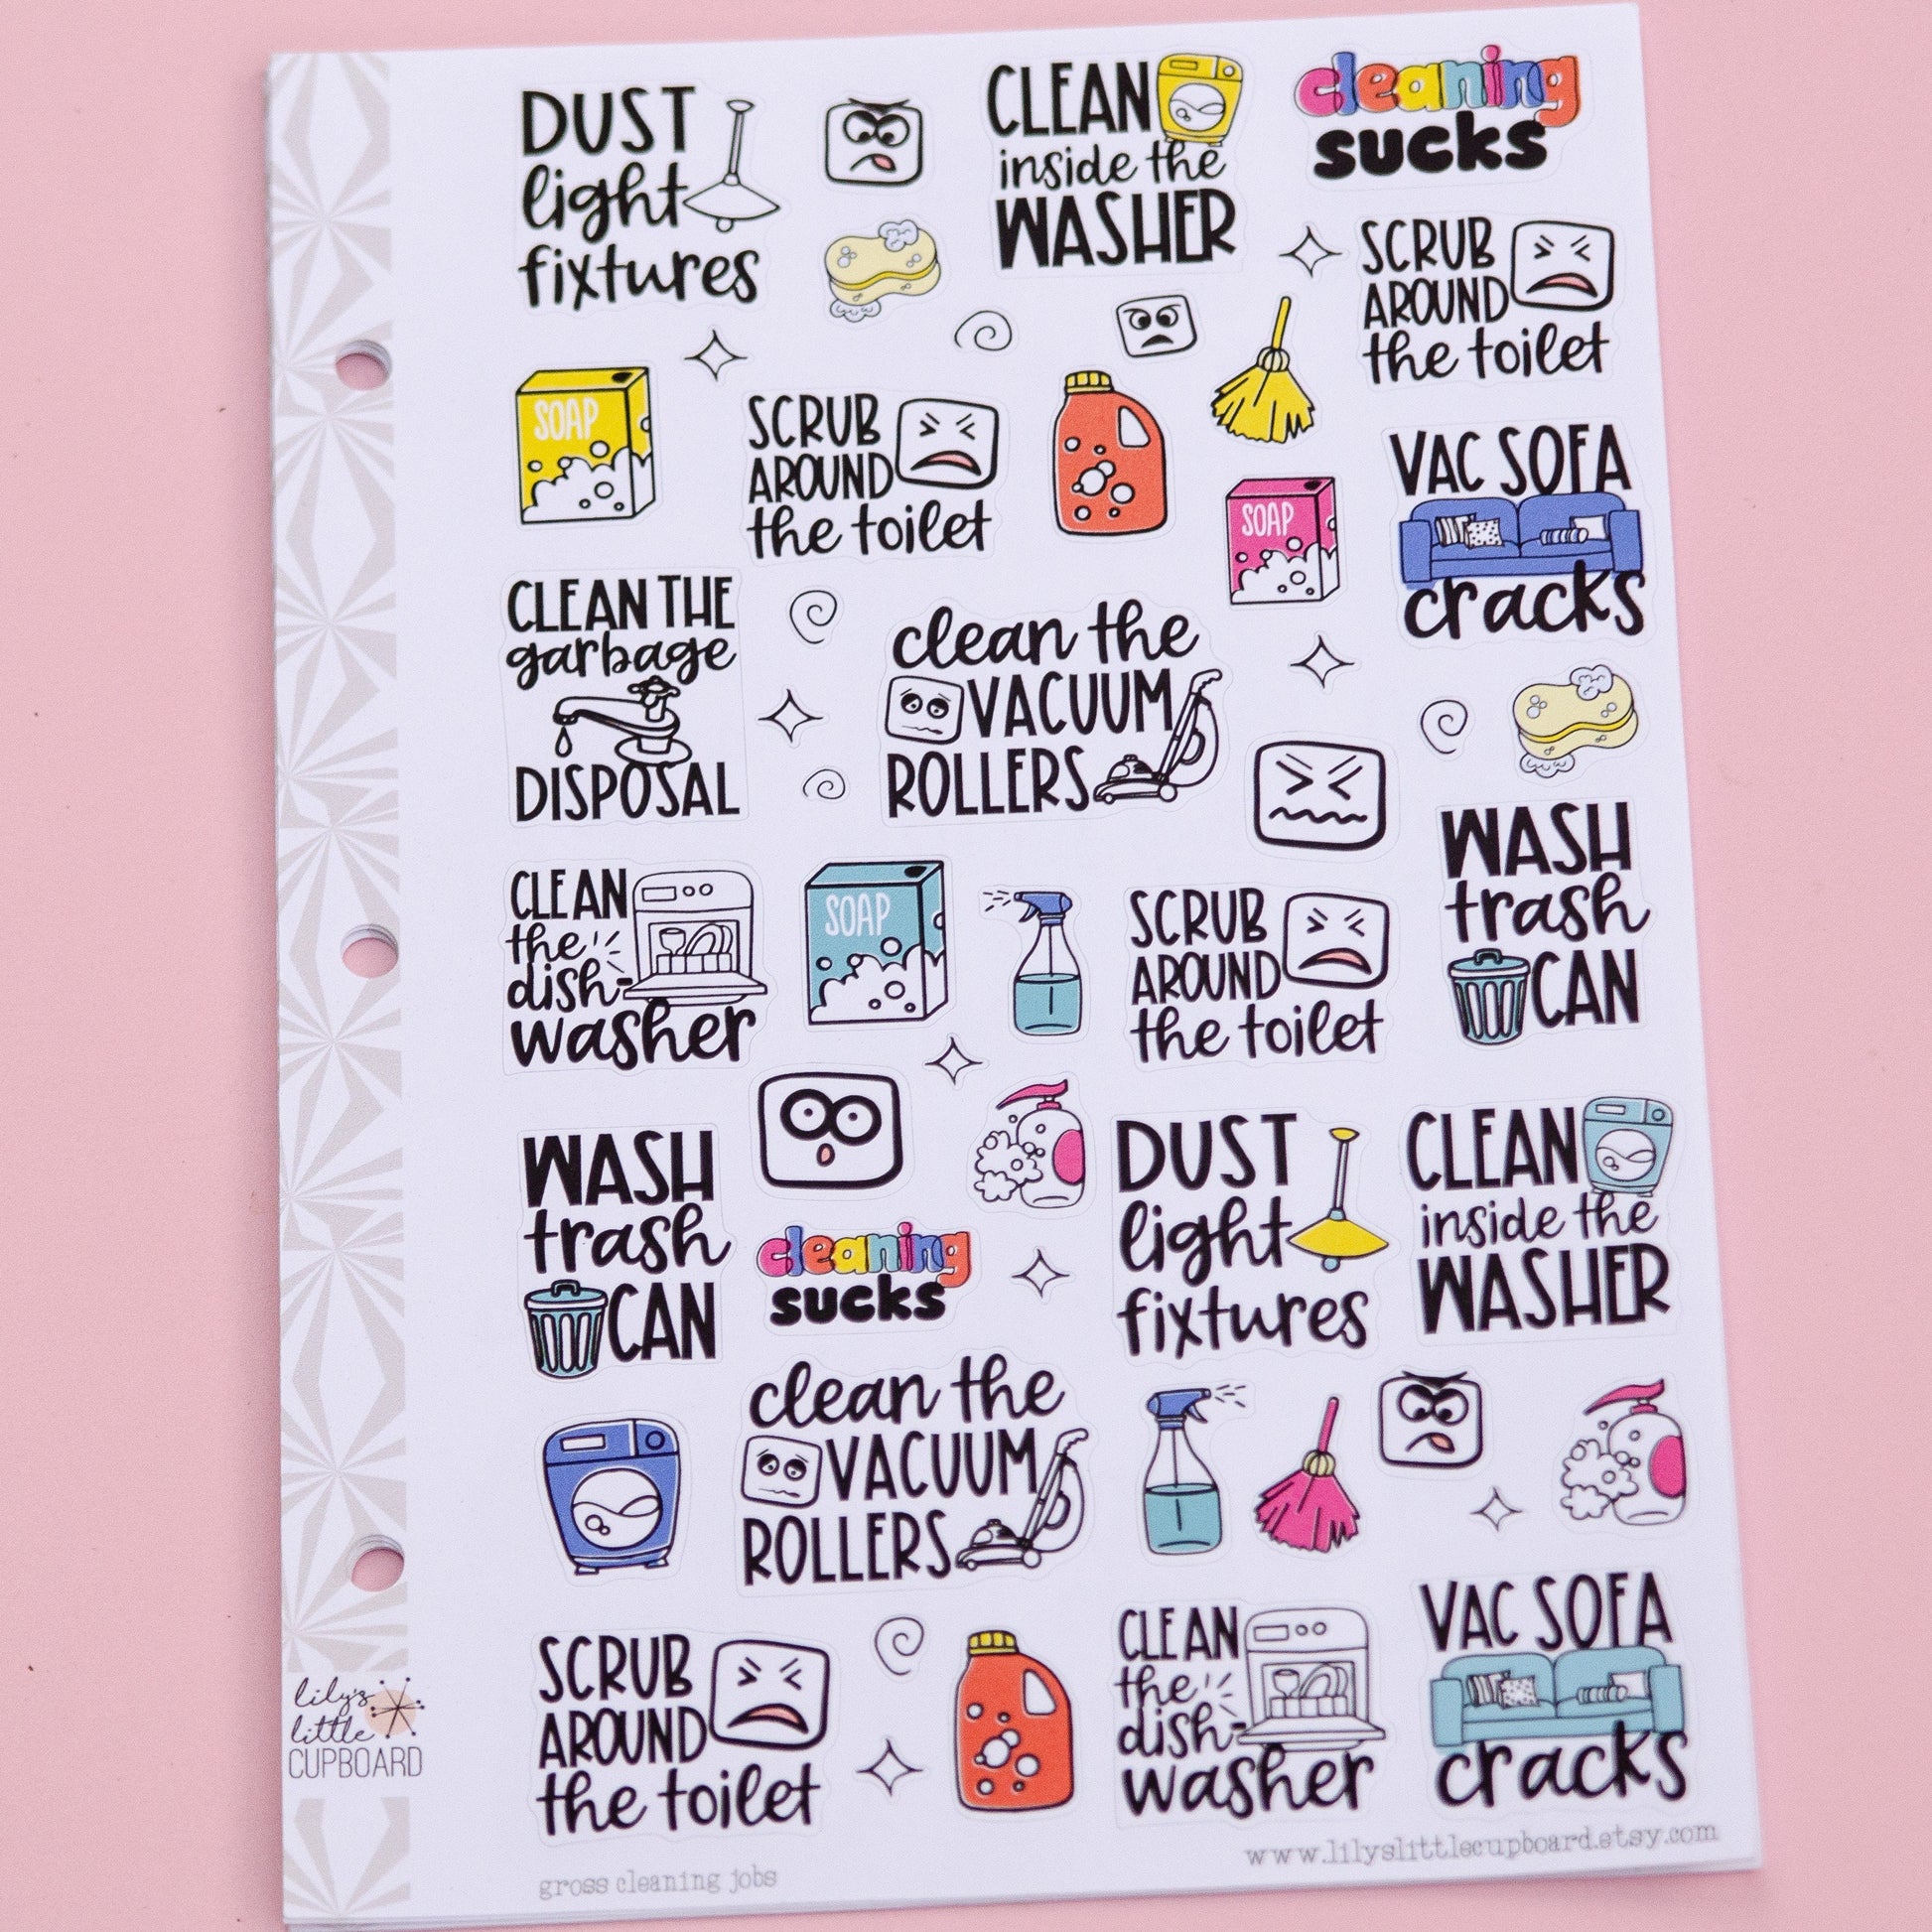 DUST
light
fixtures
CLEAN
inside the
WASHER
cleaning
sucks
SCRUB
AROUND
the toilet
SOAP
SCRUB
AROUND
the toilet
SOAP
VAC SOFA
cracks
CLEAN THE
garbage
DISPOSAL
clean the
VACUUM
ROLLERS
WASH
trash
CAN
CLEAN
the
dish-
washer
SOAP
SCRUB
AROUND
the toilet
WASH
trash
CAN
cleaning
sucks
DUST
light
fixtures
CLEAN
inside the
WASHER
clean the
VACUUM
ROLLERS
SCRUB
AROUND
the toilet
CLEAN
the
dish-
washer
VAC SOFA
cracks
lily's
little
CUPBOARD
gross cleaning jobs
www.lilyslittlecupboard.etsy.com